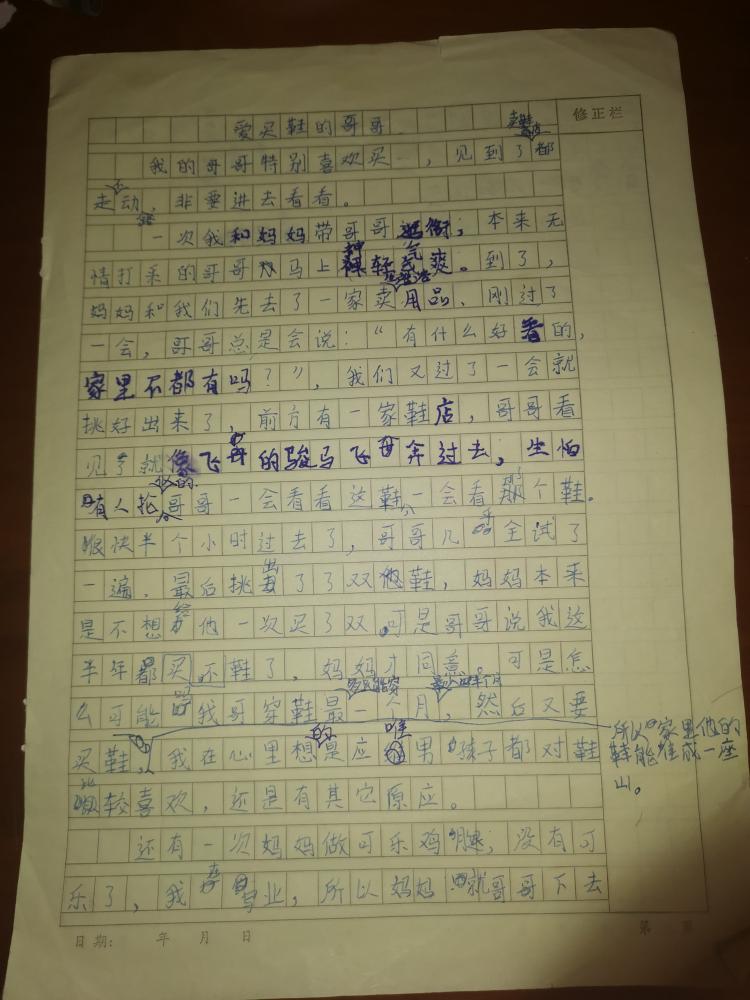 爱买鞋的哥哥
修正栏
我的哥哥特别喜欢买，见到了都
走不动，非要进去看看。
一次我和妈妈带哥哥逛街，本来无
精打采的哥哥马上神轻气爽。到了，
妈妈和我们先去了一家卖用品、刚过了
一会，哥哥总是会说：“有什么好看的，
家里不都有吗？”，我们又过了一会就
挑好出来了，前方有一家鞋店，哥哥看
见了就像飞奔的骏马飞奔过去，生怕
有人抢哥哥一会看看这鞋一会看那个鞋。
很快半个小时过去了，哥哥几乎全试了
一遍．最后挑出了了双鞋，妈妈本来
是不想给他一次买了双，可是哥哥说我这
半年都买不鞋了，妈妈才同意。可是怎
么可能，我哥穿鞋最个月，然后又要
买鞋，我在心里想的是应唯男孩子都对鞋
比较喜欢，还是有其它原应。
所以家里他的
鞋能堆成一座
山。
还有一次妈妈做可乐鸡腿，没有可
乐了，我在写业，所以妈妈就哥哥下去
日期： 年 月 日
第 页